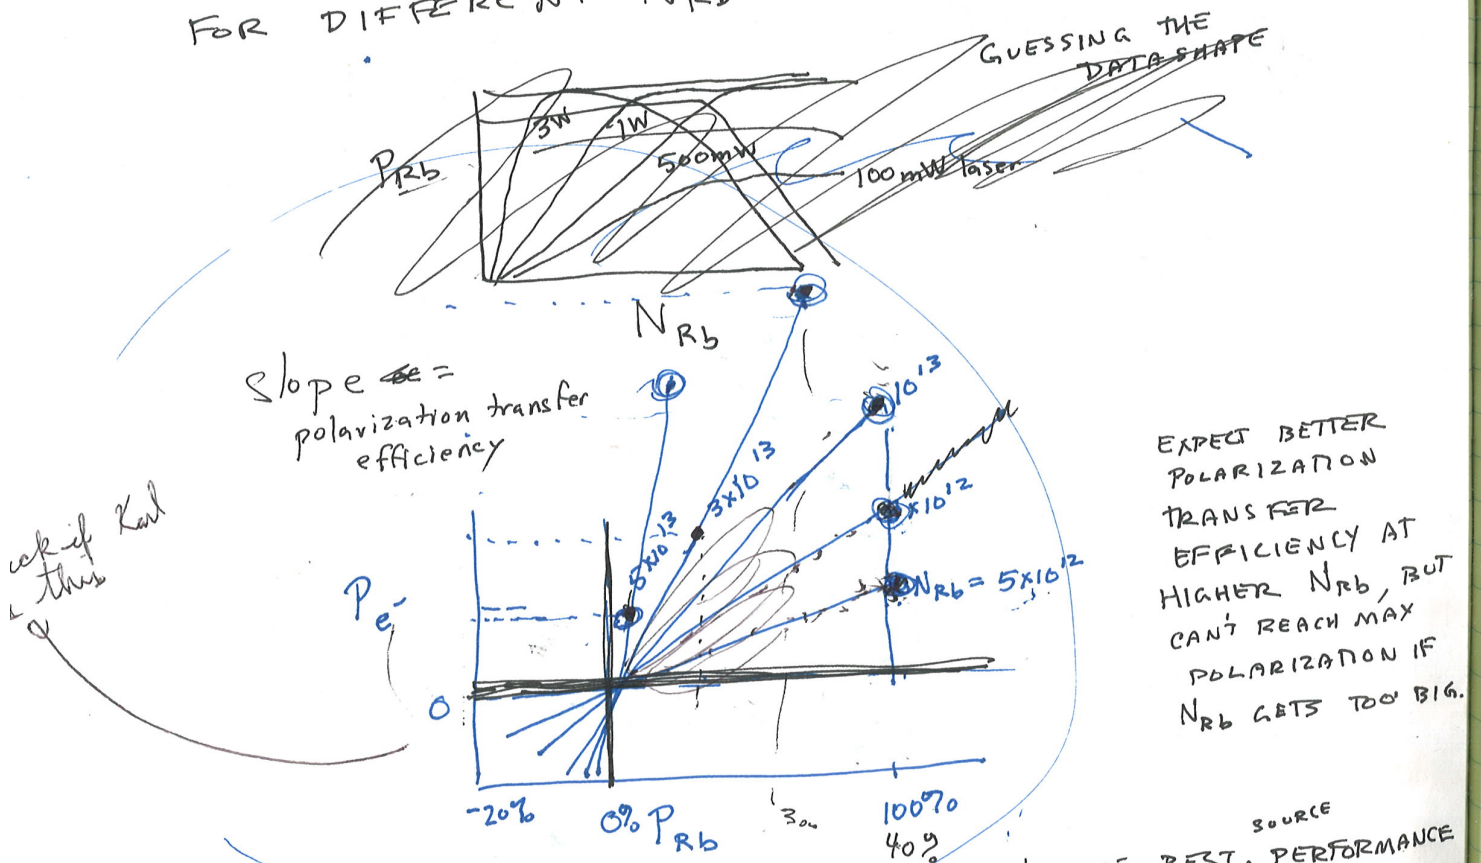 FOR DIFFERENT NRb
GUESSING THE
DATA SHAPE
3W
1W
500mW
100mW laser
PRb
NRb
slope =
polarization transfer
efficiency
10^13
3x10^13
5x10^13
x10^12
NRb = 5x10^12
if Karl
this
Pe-
0
-20%
0%
PRb
30%
100%
40%
EXPECT BETTER
POLARIZATION
TRANSFER
EFFICIENCY AT
HIGHER NRb, BUT
CAN'T REACH MAX
POLARIZATION IF
NRb GETS TOO BIG.
SOURCE
BEST PERFORMANCE